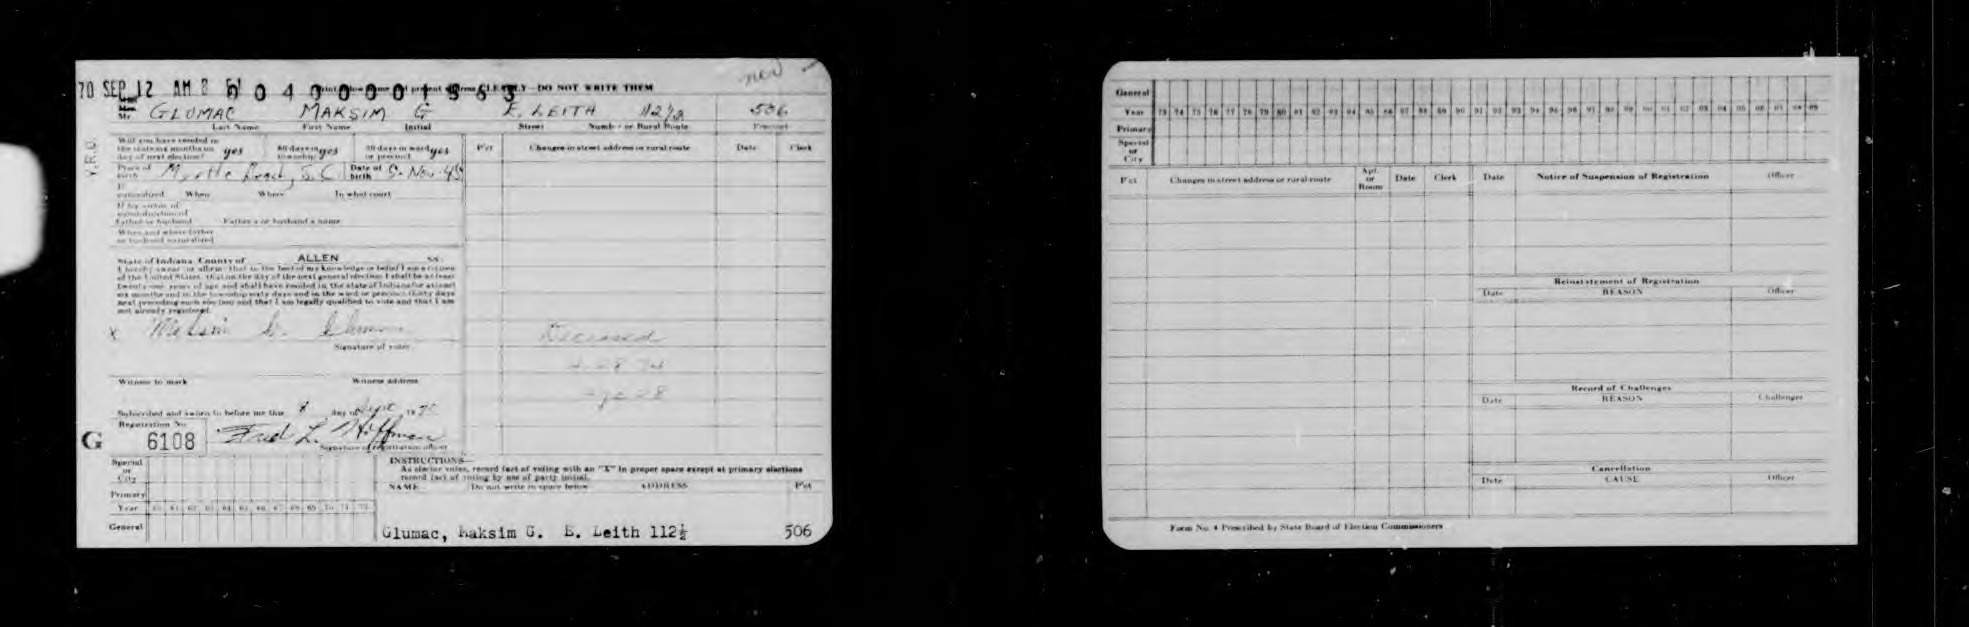 70 SEP 12 AM 8
0 4 0 0 0 0 1 9 6 3
DO NOT WRITE THEM
new
Mr. GLUMAC MAKSIM G E. LEITH 112½ 506
Last Name First Name Initial Street Number or Rural Route Precinct
V.R.O.
Will you have resided in the state six months on day of next election? yes 60 days in township? yes 30 days in ward or precinct yes
P'ct Changes in street address or rural route Date Clerk
Place of birth Myrtle Beach, S.C. Date of birth 5 Nov 45
If naturalized When Where In what court
If by virtue of naturalization of father or husband Father's or husband's name
When and where father or husband naturalized
State of Indiana, County of ALLEN SS:
I hereby swear or affirm that to the best of my knowledge or belief I am a citizen
of the United States, that on the day of the next general election I shall be at least
twenty-one years of age and shall have resided in the state of Indiana for at least
six months and in the township sixty days and in the ward or precinct thirty days
next preceding such election and that I am legally qualified to vote and that I am
not already registered.
x Maksim G. Glumac
Signature of voter
Deceased
28 74
age 28
Witness to mark Witness address
Subscribed and sworn to before me this 8 day of Sept 1970
Registration No.
G 6108 Fred L. Hoffman
Signature of registration officer
INSTRUCTIONS
As elector votes, record fact of voting with an "X" in proper space except at primary elections
record fact of voting by use of party initial.
NAME Do not write in space below ADDRESS P'ct
Special or City
Primary
Year 60 61 62 63 64 65 66 67 68 69 70 71 72
General
Glumac, Maksim G. E. Leith 112½ 506
General
Year 73 74 75 76 77 78 79 80 81 82 83 84 85 86 87 88 89 90 91 92 93 94 95 96 97 98 99 00 01 02 03 04 05 06 07 08 09
Primary
Special or City
P'ct Changes in street address or rural route Apt. or Room Date Clerk
Date Notice of Suspension of Registration Officer
Reinstatement of Registration
Date REASON Officer
Record of Challenges
Date REASON Challenger
Cancellation
Date CAUSE Officer
Form No. 4 Prescribed by State Board of Election Commissioners